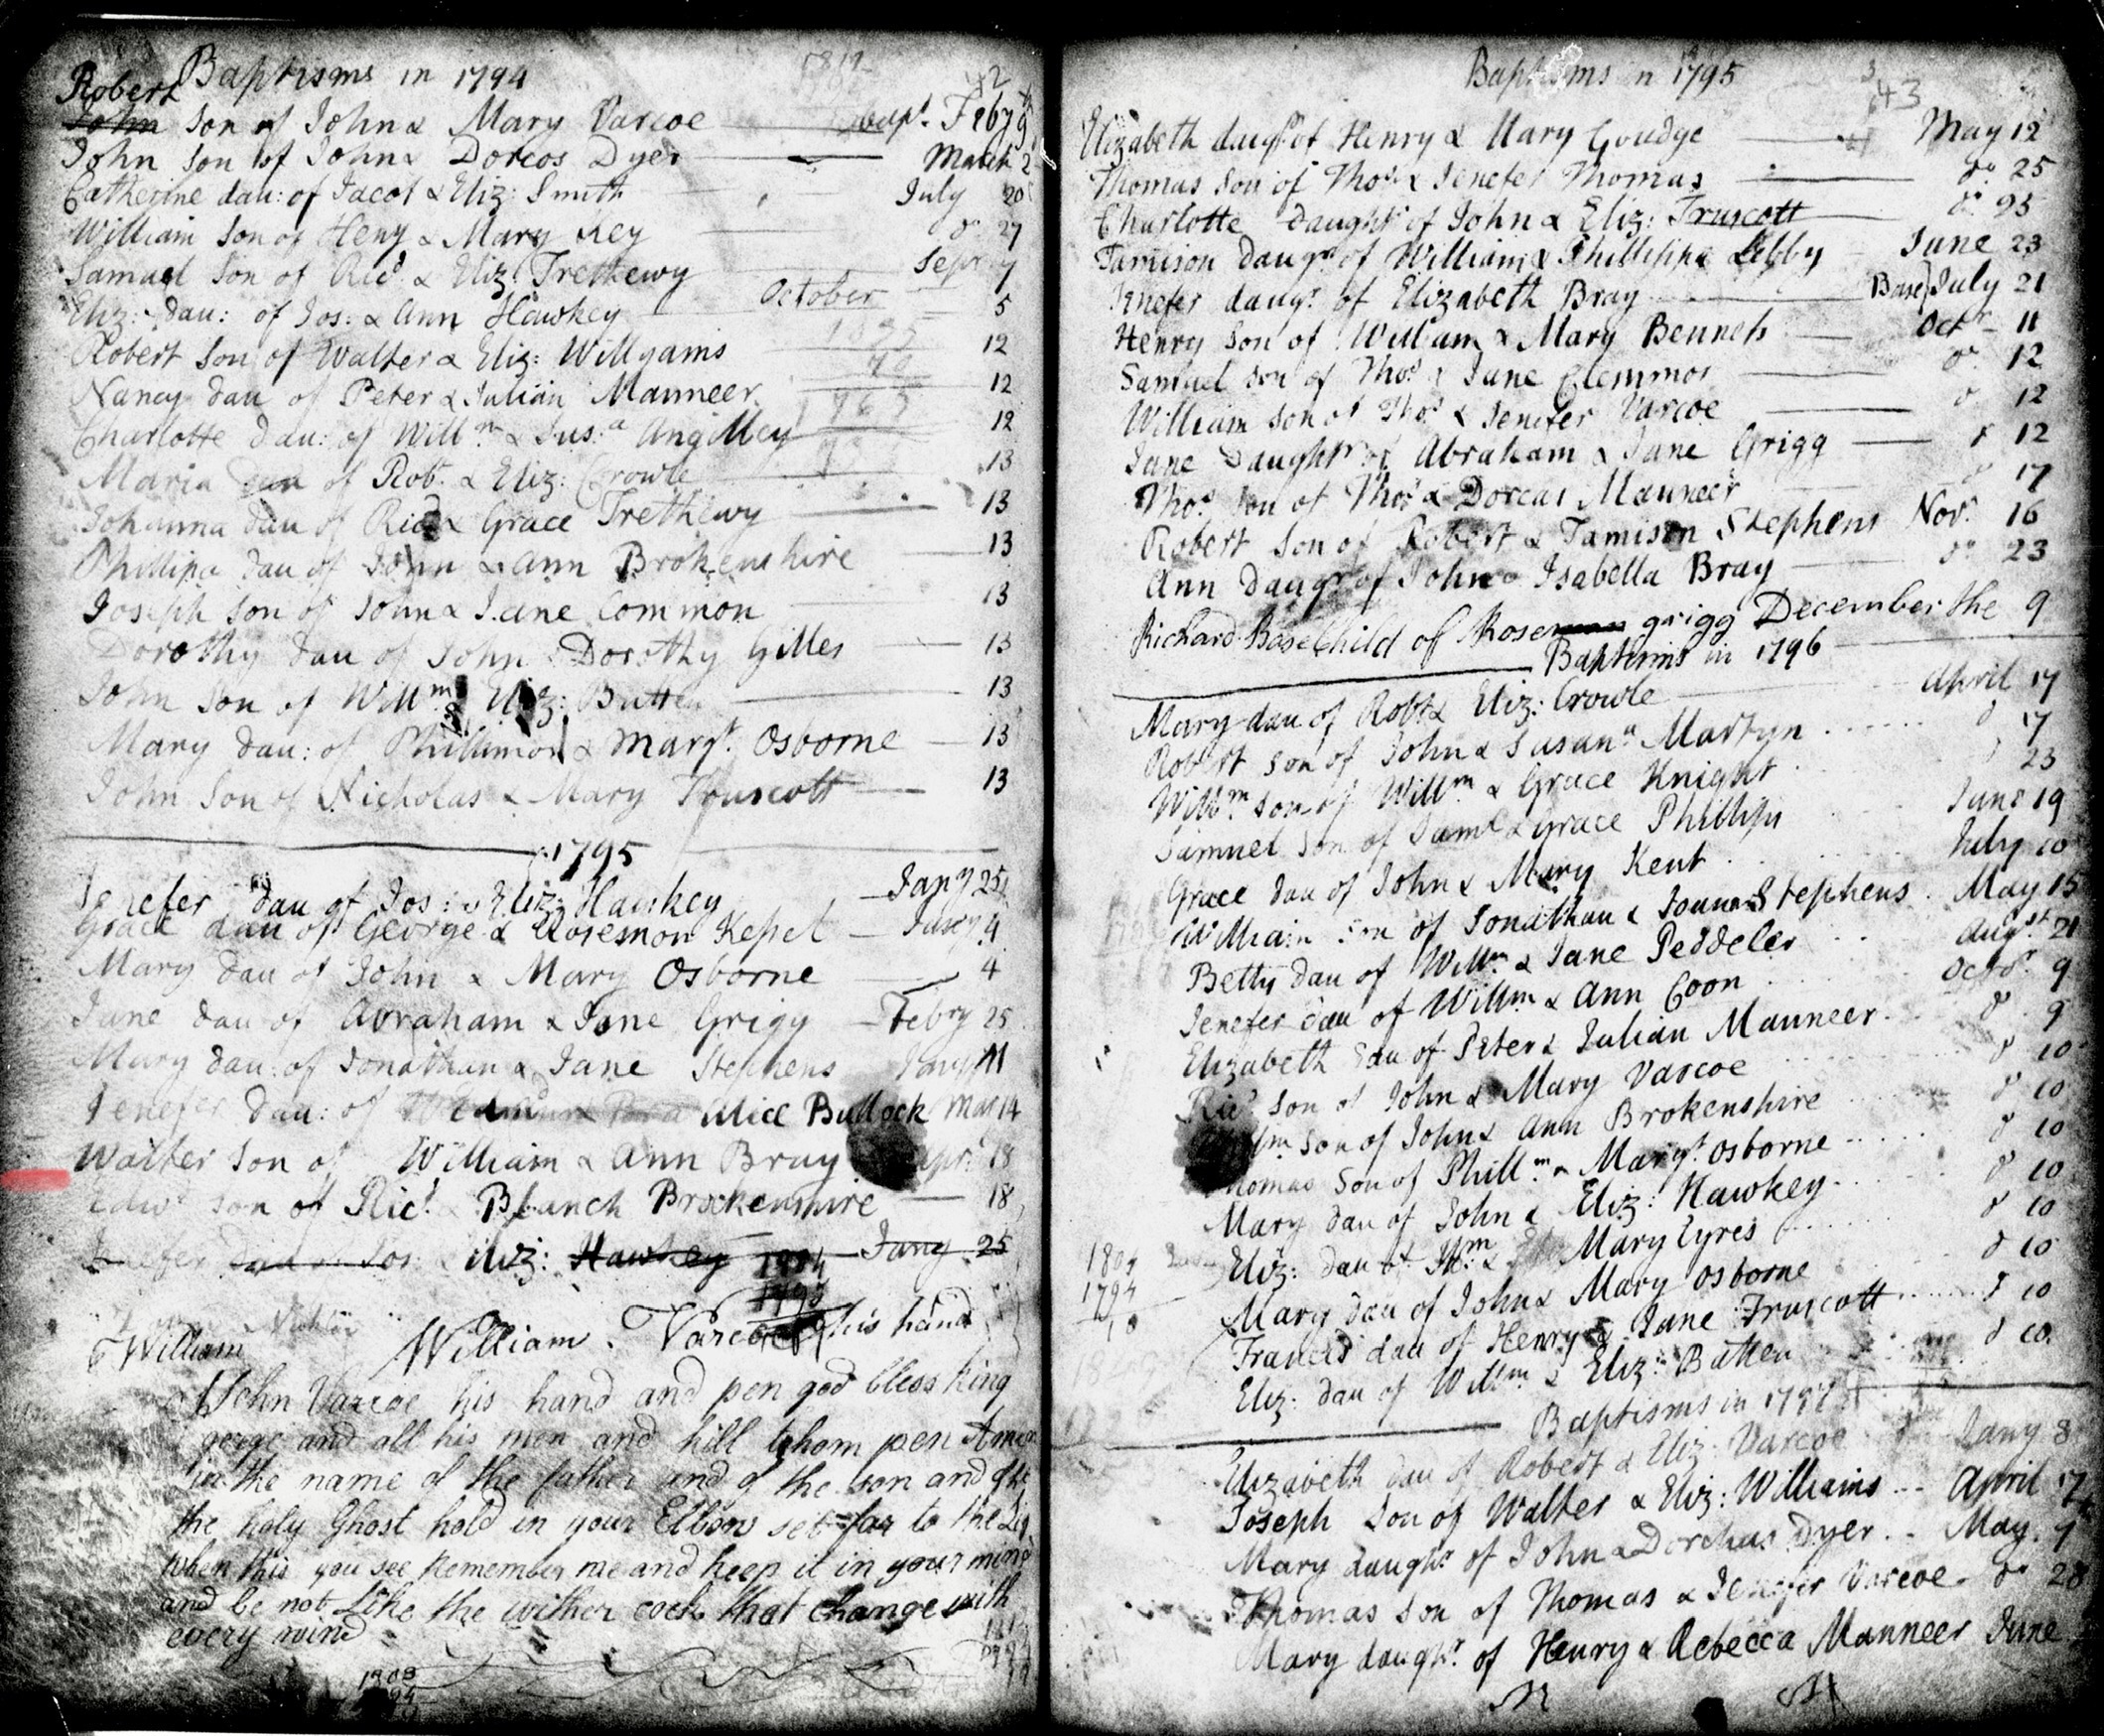 Baptisms in 1794
42
Robert
John Son of John & Mary Varcoe bap.t Feby 9
John Son of John & Dorcos Dyer March 2
Catherine dau: of Jacob & Eliz: Smith July 20
William Son of Heny & Mary Key do 27
Samuel Son of Ricd & Eliz: Trethewy Sepr 7
Eliz: Dau: of Jos: & Ann Hawkey October 5
Robert Son of Walter & Eliz: Willyams 12
Nancy Dau of Peter & Julian Manneer 12
Charlotte Dau: of Willm & Sus:a Angilley 12
Maria Dau of Robt & Eliz: Crowle 13
Johanna Dau of Ricd & Grace Trethewy 13
Phillipa Dau of John & Ann Brokenshire 13
Joseph Son of John & Jane Common 13
Dorothy Dau of John & Dorothy Gilles 13
John Son of Willm Eliz: Batten 13
Mary Dau: of Phillimon & Margt Osborne 13
John Son of Nicholas & Mary Truscott 13
1795
Jenefer Dau of Jos: & Eliz: Hawkey Jany 25
Grace dau of George & Rosemon Kepel Janry 4
Mary Dau of John & Mary Osborne 4
Jane Dau of Abraham & Jane Grigg Febry 25
Mary Dau: of Jonathan & Jane Stephens Jany 11
Jenefer Dau: of Alice Bullock Mar 14
Walter Son of William & Ann Bray Apr: 18
Edwd Son of Ricd & Blanch Brokenshire 18
Jenefer Dau of Jos: Eliz: Hawkey Jany 25
1794
William William Varcoe his hand
John Varcoe his hand and pen god bless king
gorge and all his men and kill thom pen Amen
in the name of the father and of the son and of
the holy Ghost hold in your Elbow set far to the
when this you see Remember me and keep it in your mind
and be not Like the wither cock that change with
every wind
1808
94
Baptisms in 1795
43
Elizabeth daugr of Henry & Mary Goudge May 12
Thomas Son of Thos & Jenefer Thomas do 25
Charlotte Daughr of John & Eliz: Truscott do 25
Tamison Daugr of William & Phillippa Libby June 23
Jenefer daugr of Elizabeth Bray Base} July 21
Henry Son of William & Mary Bennets Octr 11
Samuel Son of Thos & Jane Clemmos do 12
William Son of Thos & Jenefer Varcoe do 12
Jane Daughtr of Abraham & Jane Grigg do 12
Thos Son of Thos & Dorcas Manneer do 17
Robert Son of Robert & Tamison Stephens Novr 16
Ann Daugr of John & Isabella Bray do 23
Richard Base Child of Rose grigg December the 9
Baptisms in 1796
Mary dau of Robt & Eliz: Crowle April 17
Robert Son of John & Susana Martyn do 17
Willm Son of Willm & Grace Knight do 23
Samuel Son of Saml & Grace Phillips June 19
Grace Dau of John & Mary Kent July 10
William Son of Jonathan & Joanna Stephens May 15
Betty Dau of Willm & Jane Peddeler Augst 21
Jenefer Dau of Willm & Ann Coon Octor 9
Elizabeth Dau of Peter & Julian Manneer do 9
Ricd Son of John & Mary Varcoe do 10
Son of John & Ann Brokenshire do 10
Thomas Son of Phillm & Margt Osborne do 10
Mary Dau of John & Eliz: Hawkey do 10
Eliz: Dau of Wm & Mary Eyres do 10
Mary Dau of John & Mary Osborne do 10
Frances dau of Henry & Jane Truscott do 10
Eliz: Dau of Willm & Eliz: Batten do 10
1804
1794
10
Baptisms in 1797
Elizabeth Dau of Robert & Eliz: Varcoe Jany 8
Joseph Son of Walter & Eliz: Williams April 17
Mary daughr of John & Dorchas Dyer May 7
Thomas Son of Thomas & Jenefer Varcoe do 28
Mary daughr of Henry & Rebecca Manneer June